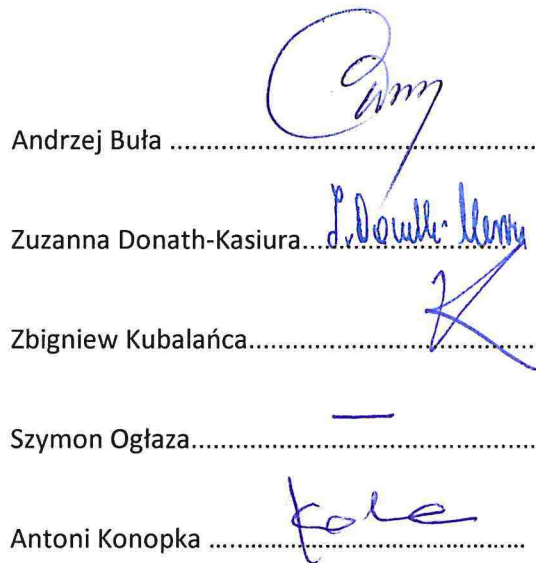 Andrzej Buła ..........................................
Zuzanna Donath-Kasiura..........................
Zbigniew Kubalańca..................................
Szymon Ogłaza..........................................
Antoni Konopka ......................................